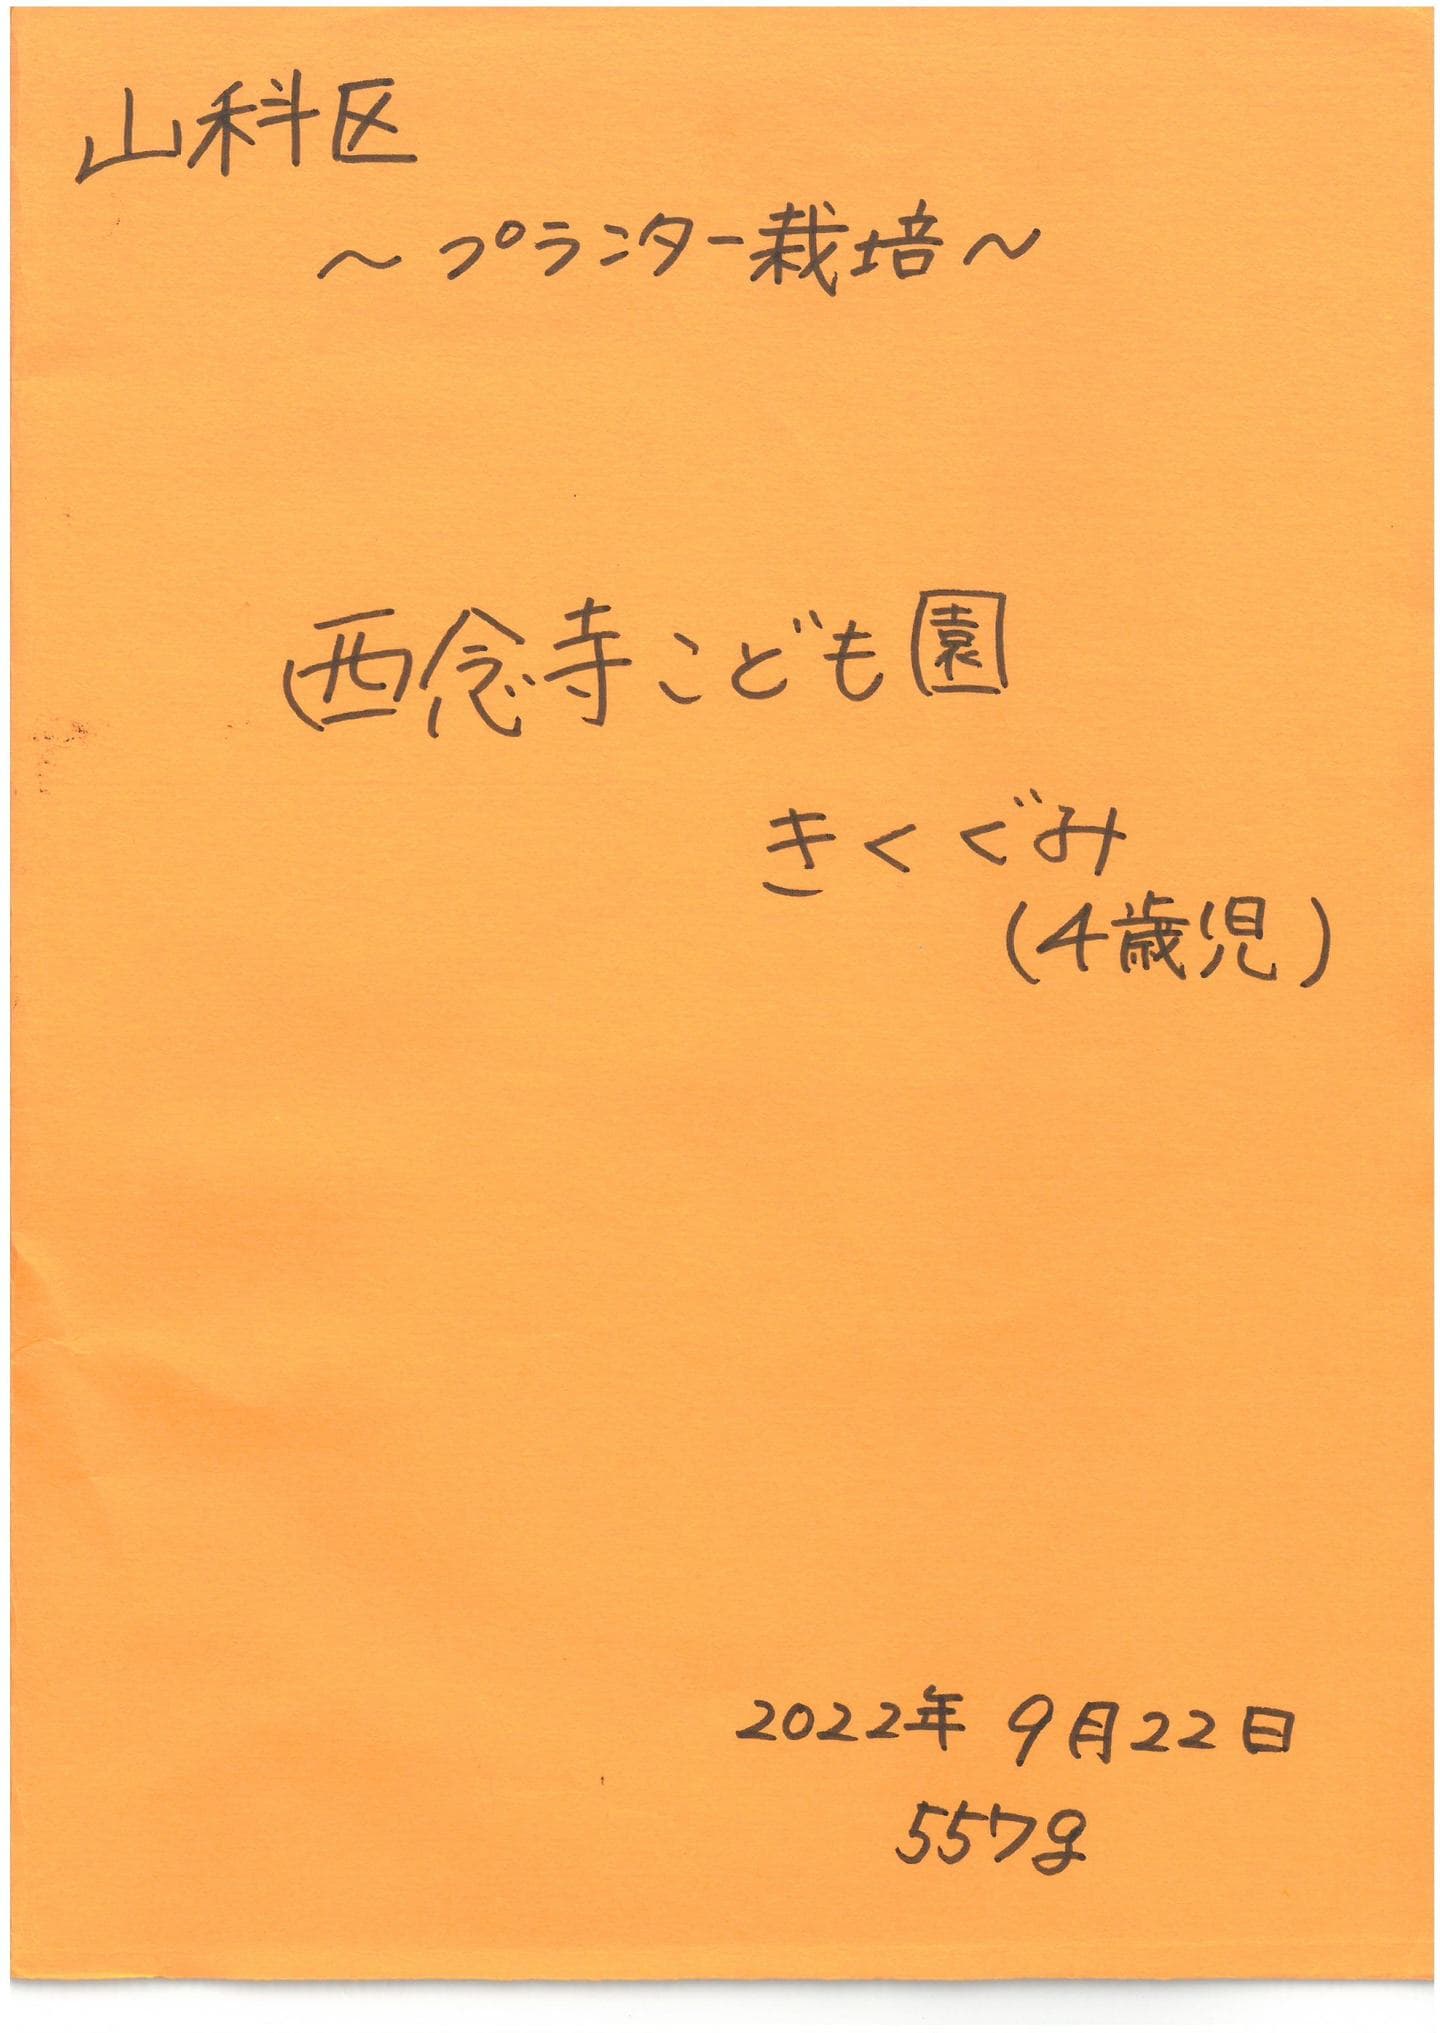 山科区
～プランター栽培～
西念寺こども園
きくぐみ
(4歳児)
2022年 9月22日
557g